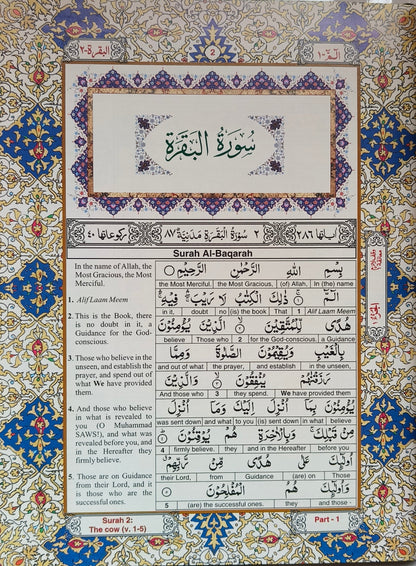 البقرة-٢
2
الٓمٓ-١
سُورَةُ الْبَقَرَةِ
اٰیاتها ٢٨٦
٢ سُوْرَةُ الْبَقَرَةِ مَدَنِیَّةٌ ٨٧
رکوعاتها ٤٠
Surah Al-Baqarah
In the name of Allah, the
Most Gracious, the Most
Merciful.
1. Alif Laam Meem
2. This is the Book, there
is no doubt in it, a
Guidance for the God-
conscious.
3. Those who believe in the
unseen, and establish the
prayer, and spend out of
what We have provided
them.
4. And those who believe
in what is revealed to
you (O Muhammad
SAWS!), and what was
revealed before you, and
in the Hereafter they
firmly believe.
5. Those are on Guidance
from their Lord, and it
is those who are the
successful ones.
بِسْمِ اللّٰهِ الرَّحْمٰنِ الرَّحِیْمِ
the Most Merciful. the Most Gracious, (of) Allah, In (the) name
الٓمّٓ ١ ذٰلِكَ الْكِتٰبُ لَا رَیْبَ فِیْهِ
in it, doubt no (is) the book That 1 Alif Laam Meem
هُدًی لِّلْمُتَّقِیْنَ ٢ الَّذِیْنَ یُؤْمِنُوْنَ
believe Those who 2 for the God-conscious. a Guidance
بِالْغَیْبِ وَیُقِیْمُوْنَ الصَّلٰوةَ وَمِمَّا
and out of what the prayer, and establish in the unseen,
رَزَقْنٰهُمْ یُنْفِقُوْنَ ٣ وَالَّذِیْنَ
And those who 3 they spend. We have provided them
یُؤْمِنُوْنَ بِمَا اُنْزِلَ اِلَیْكَ وَمَا اُنْزِلَ
was sent down and what to you (is) sent down in what believe
مِنْ قَبْلِكَ وَبِالْاٰخِرَةِ هُمْ یُوْقِنُوْنَ ٤
4 firmly believe. they and in the Hereafter before you
اُولٰٓئِكَ عَلٰی هُدًی مِّنْ رَّبِّهِمْ
their Lord, from Guidance (are) on Those
وَاُولٰٓئِكَ هُمُ الْمُفْلِحُوْنَ ٥
5 (are) the successful ones. they and those -
Surah 2:
The cow (v. 1-5)
Part - 1